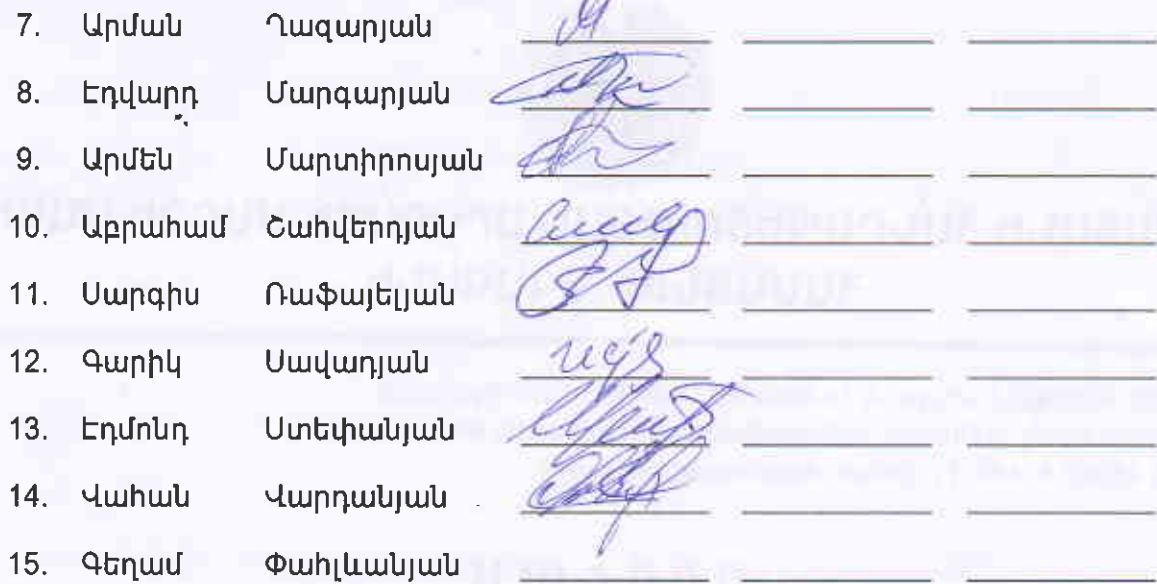 7. Արման Ղազարյան
8. Էդվարդ Մարգարյան
9. Արմեն Մարտիրոսյան
10. Աբրահամ Շահվերդյան
11. Սարգիս Ռաֆայելյան
12. Գարիկ Սավադյան
13. Էդմոնդ Ստեփանյան
14. Վահան Վարդանյան
15. Գեղամ Փահլևանյան